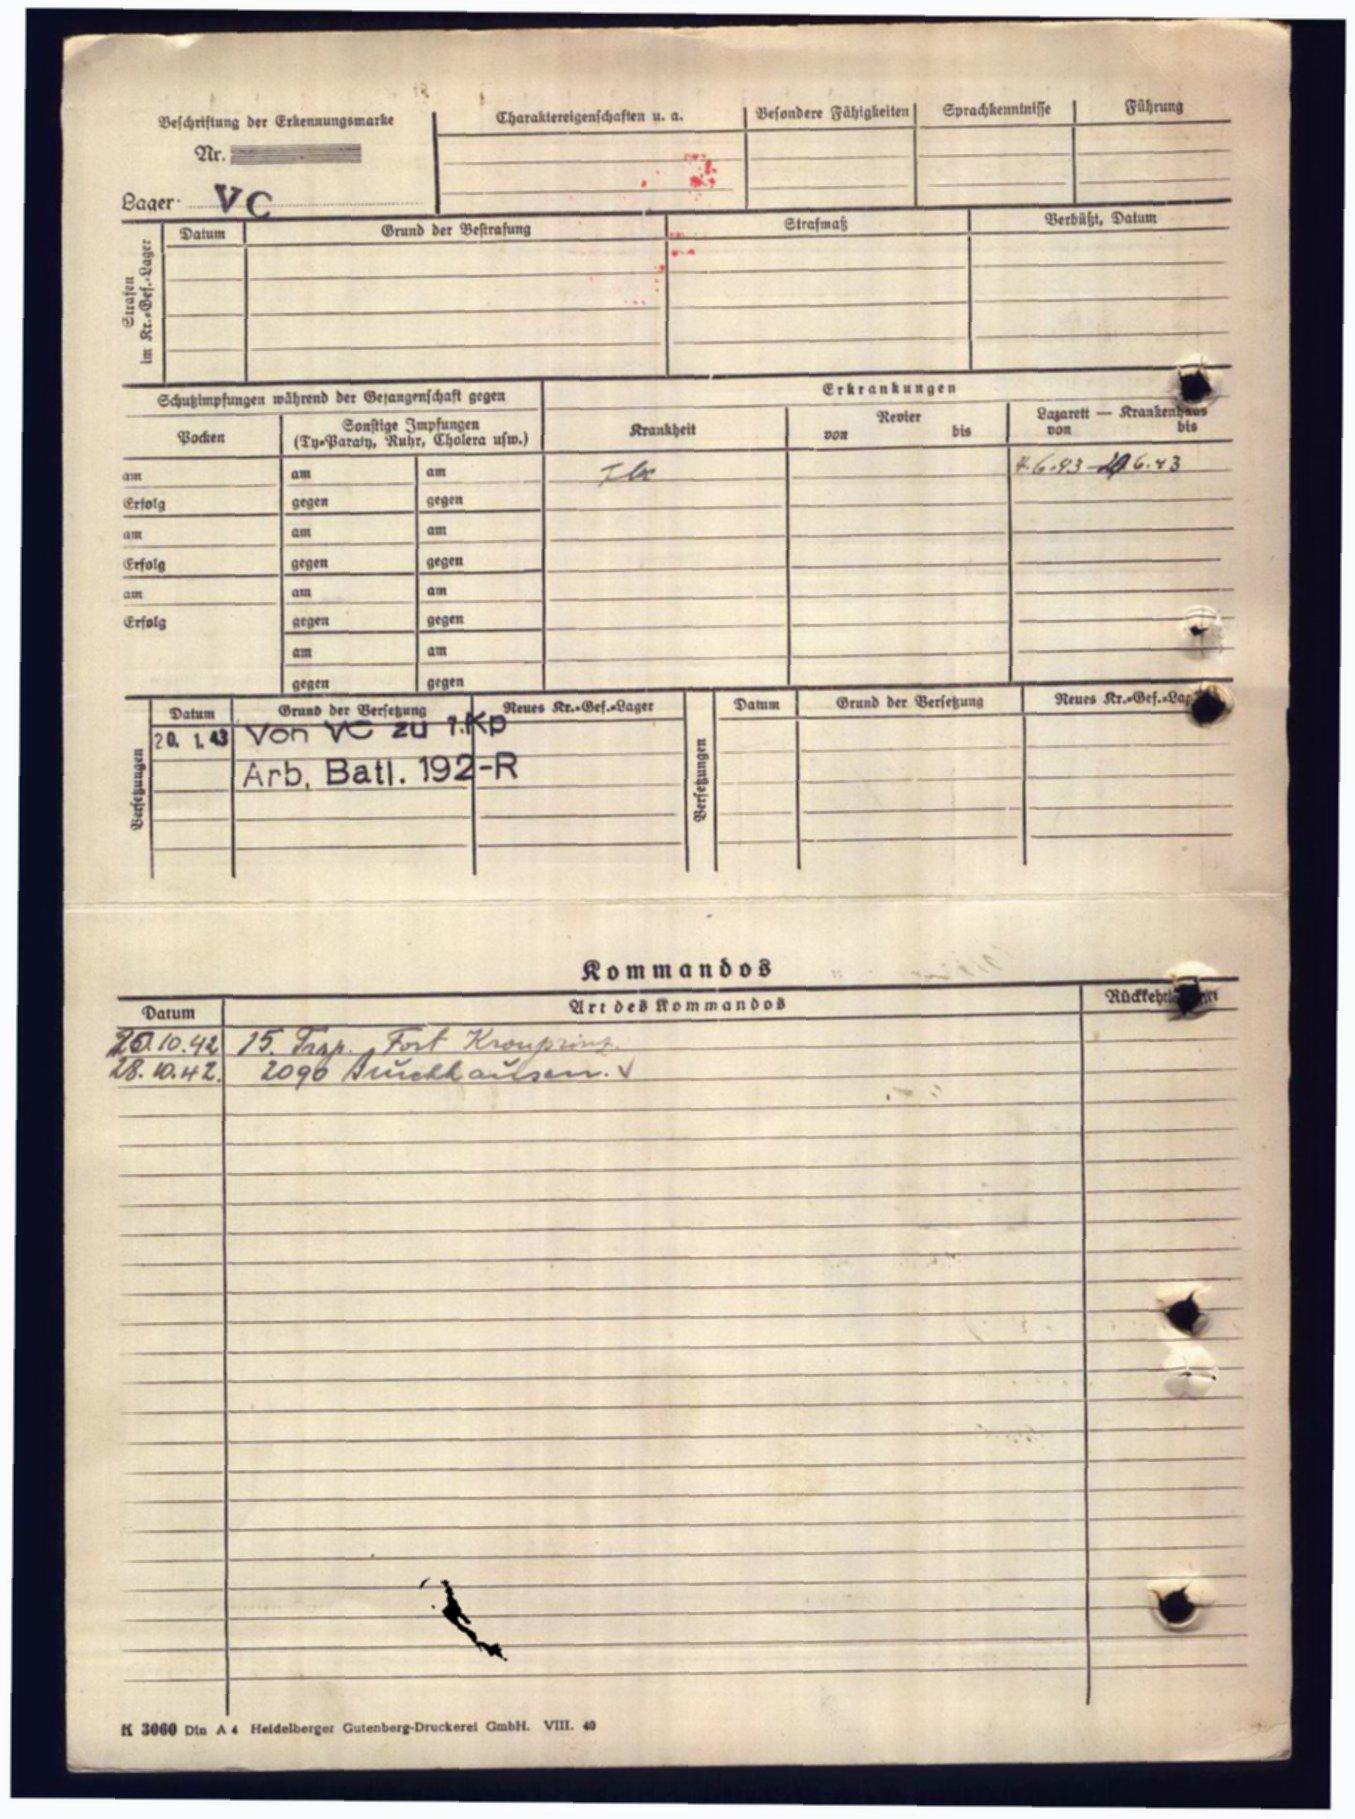 Beschriftung der Erkennungsmarke
Nr.
Lager: VC
Charaktereigenschaften u. a.
Besondere Fähigkeiten
Sprachkenntnisse
Führung
Strafen
im Kr.=Gef.=Lager
Datum
Grund der Bestrafung
Strafmaß
Verbüßt, Datum
Schutzimpfungen während der Gefangenschaft gegen
Erkrankungen
Pocken
Sonstige Impfungen
(Ty=Paraty, Ruhr, Cholera usw.)
Krankheit
Revier
von bis
Lazarett — Krankenhaus
von bis
am am am Tbc 4.6.43 - 6.43
Erfolg gegen gegen
am am am
Erfolg gegen gegen
am am am
Erfolg gegen gegen
am am
gegen gegen
Versetzungen
Datum Grund der Versetzung Neues Kr.=Gef.=Lager
20. 1. 43 Von VC zu 1.Kp
Arb. Batl. 192-R
Versetzungen
Datum Grund der Versetzung Neues Kr.=Gef.=Lag
Kommandos
Datum Art des Kommandos
20.10.42 15. Trsp. Fort Kronprinz.
28.10.42. 2090 Bruchhausen. √
K 3060 Din A 4 Heidelberger Gutenberg-Druckerei GmbH. VIII. 40